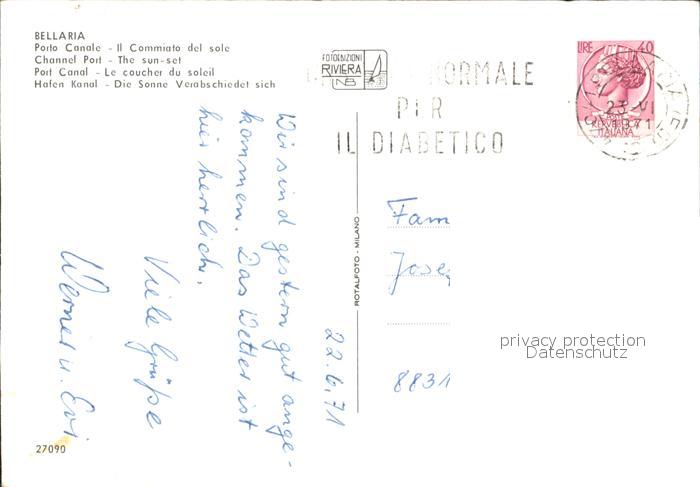 BELLARIA
Porto Canale - Il Commiato del sole
Channel Port - The sun-set
Port Canal - Le coucher du soleil
Hafen Kanal - Die Sonne Verabschiedet sich
FOTOEDIZIONI
RIVIERA
NORMALE
PER
IL DIABETICO
LIRE 40
23 VI
1971
POSTE
REPUBBLICA
ITALIANA
22.6.71
Wir sind gestern gut ange-
kommen. Das Wetter ist
hier herrlich.
Viele Grüße
Werner u. Evi
ROTALFOTO - MILANO
Fam
Josef
8831
privacy protection
Datenschutz
27090